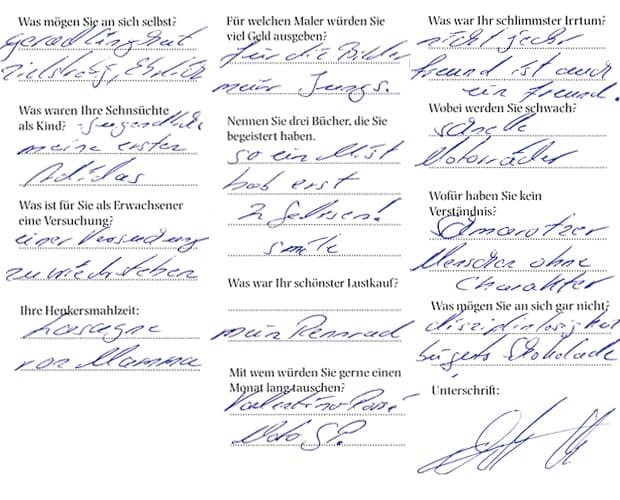 Was mögen Sie an sich selbst?
geradlinigkeit
zielstrebig, Ehrlich
Was waren Ihre Sehnsüchte
als Kind? - Jugendliche
meine ersten
Adidas
Was ist für Sie als Erwachsener
eine Versuchung?
einer Versuchung
zu wiederstehen
Ihre Henkersmahlzeit:
Lasagne
von Mamma
Für welchen Maler würden Sie
viel Geld ausgeben?
für die Bilder
meiner Jungs.
Nennen Sie drei Bücher, die Sie
begeistert haben.
so ein Mist
hab erst
2 gelesen!
smile
Was war Ihr schönster Lustkauf?
mein Rennrad
Mit wem würden Sie gerne einen
Monat lang tauschen?
Valentino Rossi
Moto GP.
Was war Ihr schlimmster Irrtum?
nicht jeder
freund ist auch
ein freund.
Wobei werden Sie schwach?
schnelle
Motorräder
Wofür haben Sie kein
Verständnis?
Schmarotzer
Menschen ohne
Charakter
Was mögen Sie an sich gar nicht?
disziplinlosigkeit
Schokolade
Unterschrift: